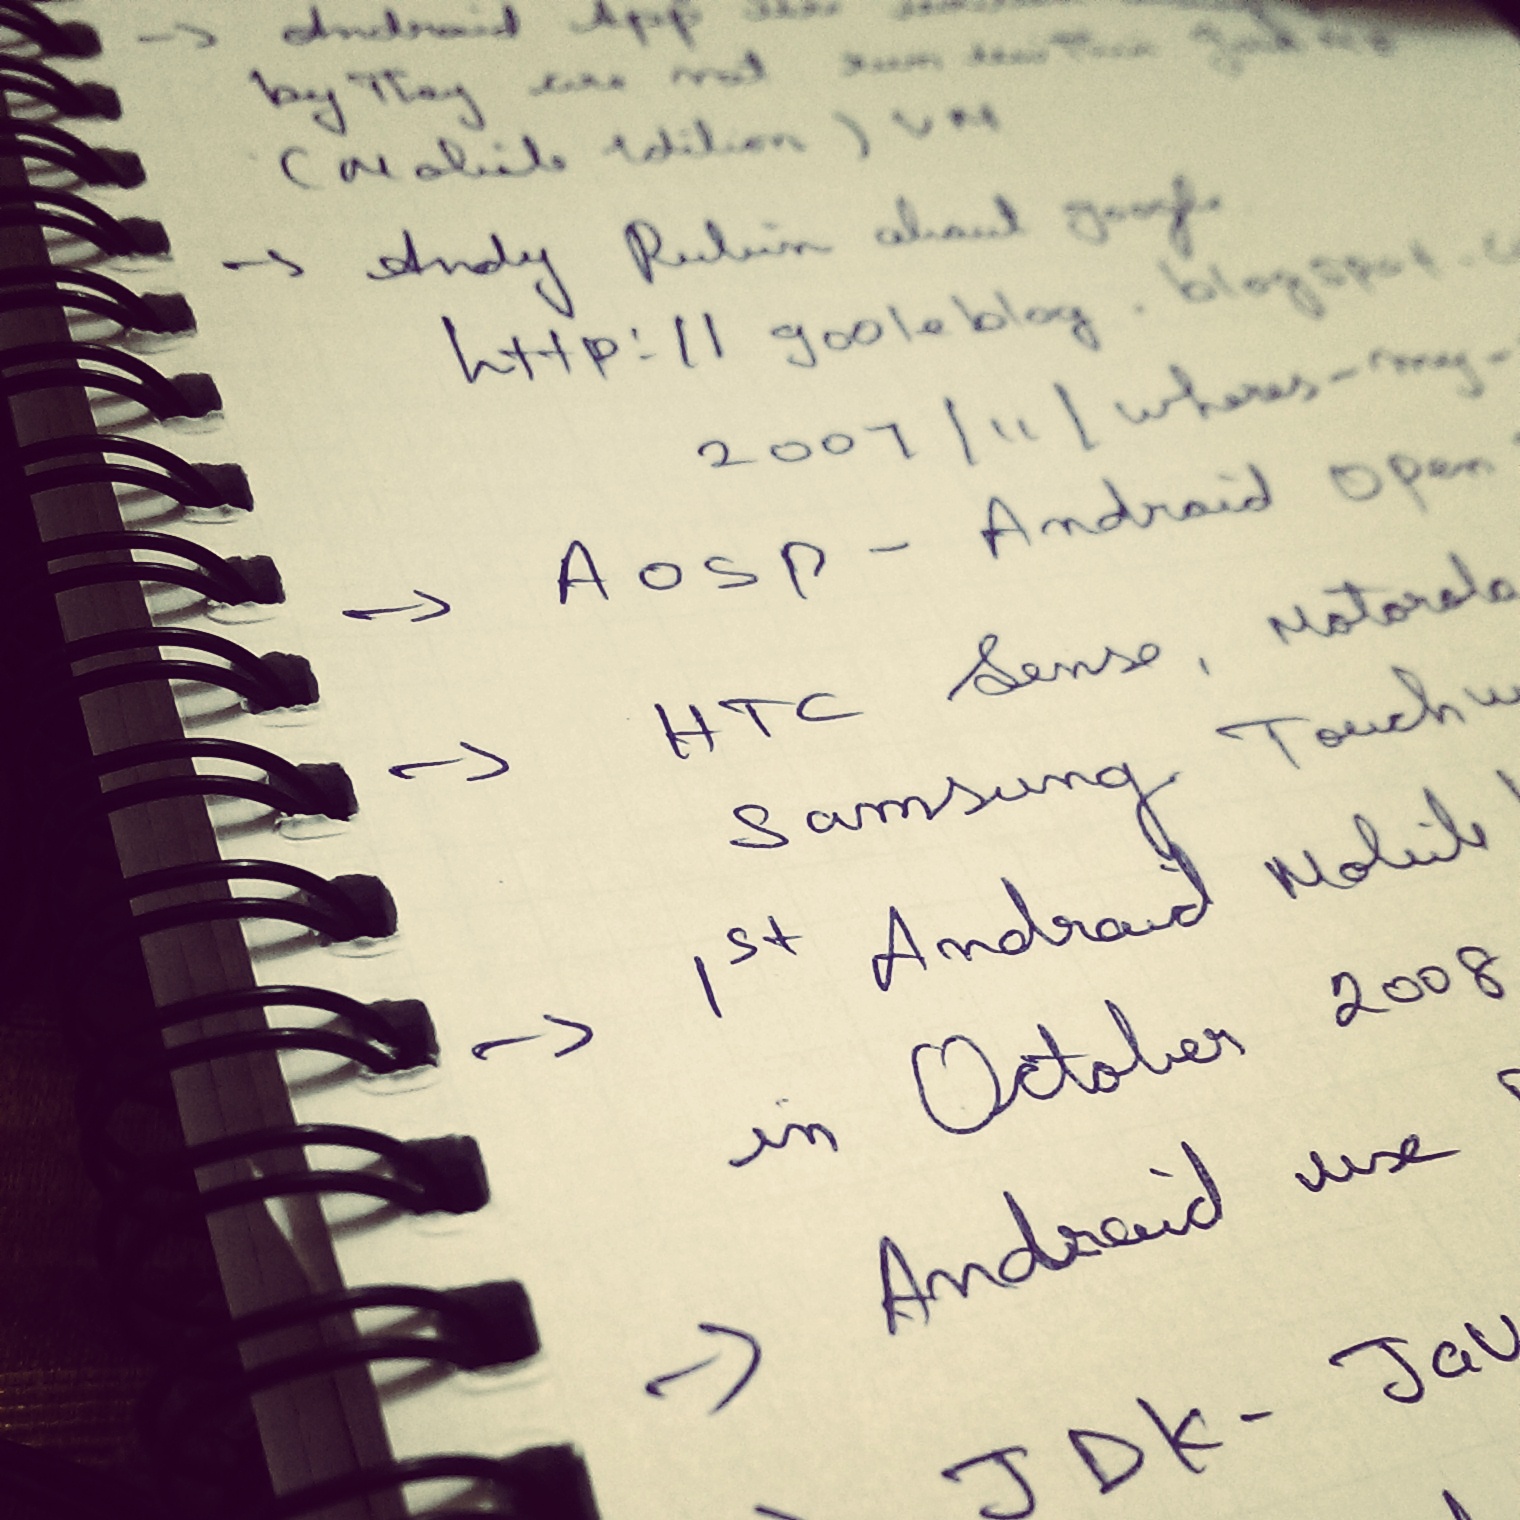 → Android App
by They are not run
(Mobile Edition) VM
→ Andy Rubin about google
http://gooleblog.blogspot.c
2007/11/wheres-my-
→ AOSP - Android Open
→ HTC Sense, Motorola
Samsung Touchw
→ 1st Android Mobile
in October 2008
→ Android use
JDK- Jav